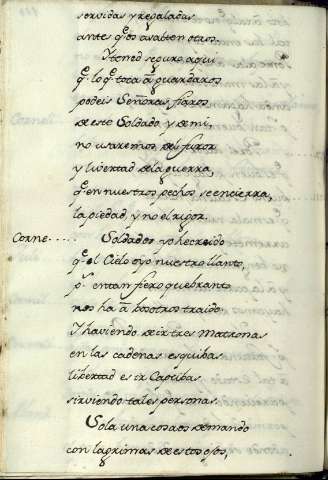 servidas y regaladas
ante q̃ os asalten otros.
Y tened seguro aqui
q̃ lo q̃ toca â guardaros
podeis Señoras fiaros
de este Soldado y de mi,
no usaremos del furor
y livertad de la guerra
q̃ en nuestros pechos se encierra,
la piedad y no el rigor.
Corne..... Soldados yo he creido
q̃ el Cielo oyo nuestro llanto,
pˢ. en tan fiero quebranto
nos ha â bosotros traido.
Y haviendo de ir tres Matronas
en las cadenas esquibas
libertad es ir Captibas
sirviendo tales personas.
Sola una cosa os demando
con lagrimas de estos ojos,